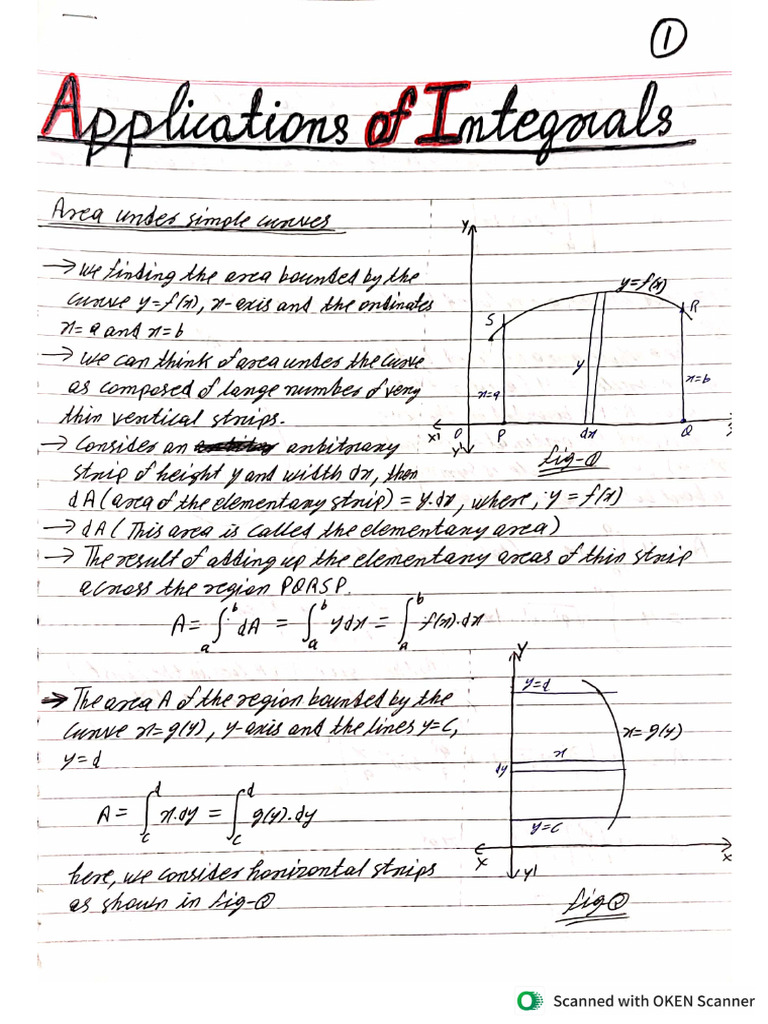 1
Applications of Integrals
Area under simple curves
→ We finding the area bounded by the
curve y=f(x), x-axis and the ordinates
x=a and x=b
→ We can think of area under the curve
as composed of large number of very
thin vertical strips.
→ Consider an arbitrary
strip of height y and width dx, then
dA (area of the elementary strip) = y.dx, where, y = f(x)
→ dA (This area is called the elementary area)
→ The result of adding up the elementary areas of thin strip
across the region PQRSP.
A = ∫ₐᵇ dA = ∫ₐᵇ ydx = ∫ₐᵇ f(x).dx
Y
y=f(x)
S
R
y
x=a
x=b
X' O P dx Q
Y'
fig-①
→ The area A of the region bounded by the
curve x=g(y), y-axis and the lines y=c,
y=d
A = ∫_c^d x.dy = ∫_c^d g(y).dy
here, we consider horizontal strips
as shown in fig-②
Y
y=d
x=g(y)
x
dy
y=c
X
x
Y'
fig②
Scanned with OKEN Scanner